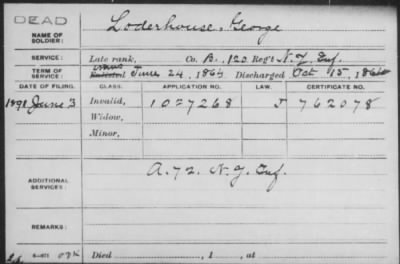 DEAD
NAME OF SOLDIER: Loderhouse, George
SERVICE: Late rank, Co. B, 120 Reg't N.Y. Inf.
TERM OF SERVICE: Enlisted trans June 24, 1864 Discharged Oct 15, 186
DATE OF FILING. CLASS. APPLICATION NO. LAW. CERTIFICATE NO.
1891 June 3 Invalid, 1027268 J 762078
Widow,
Minor,
ADDITIONAL SERVICES: A. 72. N.Y. Inf.
REMARKS:
Died , 1 , at